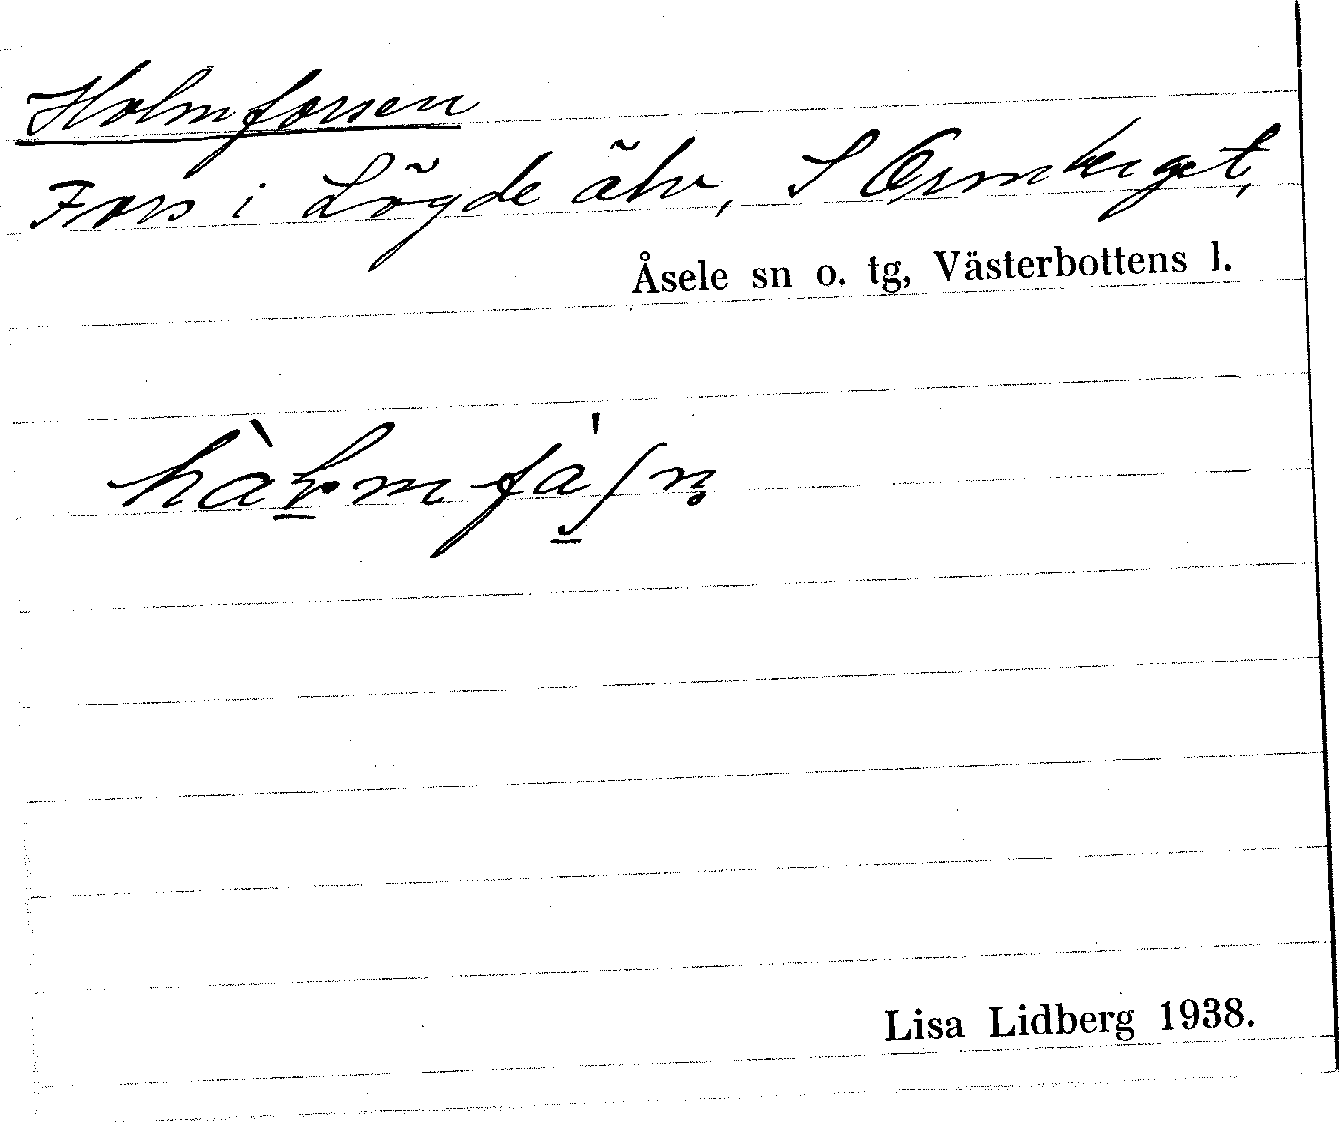 Holmforsen
Fors i Lögde älv, S Ormberget,
Åsele sn o. tg, Västerbottens l.
Lisa Lidberg 1938.